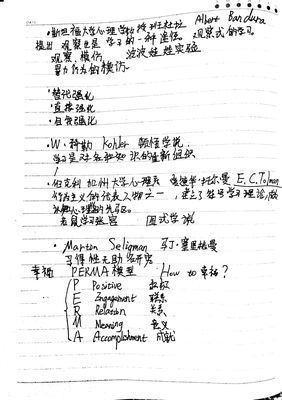 ·斯坦福大学心理学教授班杜拉 Albert Bandura
提出 观察也是学习的一种途径。 观察式的学习。
观察、模仿 波波娃娃实验
暴力行为的模仿。
·替代强化
·直接强化
·自我强化
·W·科勒 Kohler 顿悟学说
学习是对各种知识的重新组织
·伯克利加州大学心理系 爱德华·托尔曼 E.C.Tolman
行为主义的代表人物之一,建立了符号学习理论,
认知心理学的先驱。
老鼠学习迷宫
·Martin Seligman 马丁·塞里格曼
习得性无助研究
幸福 PERMA模型 How to 幸福?
P Positive
E Engagement
R Relation 关系
M Meaning 意义
A Accomplishment 成就